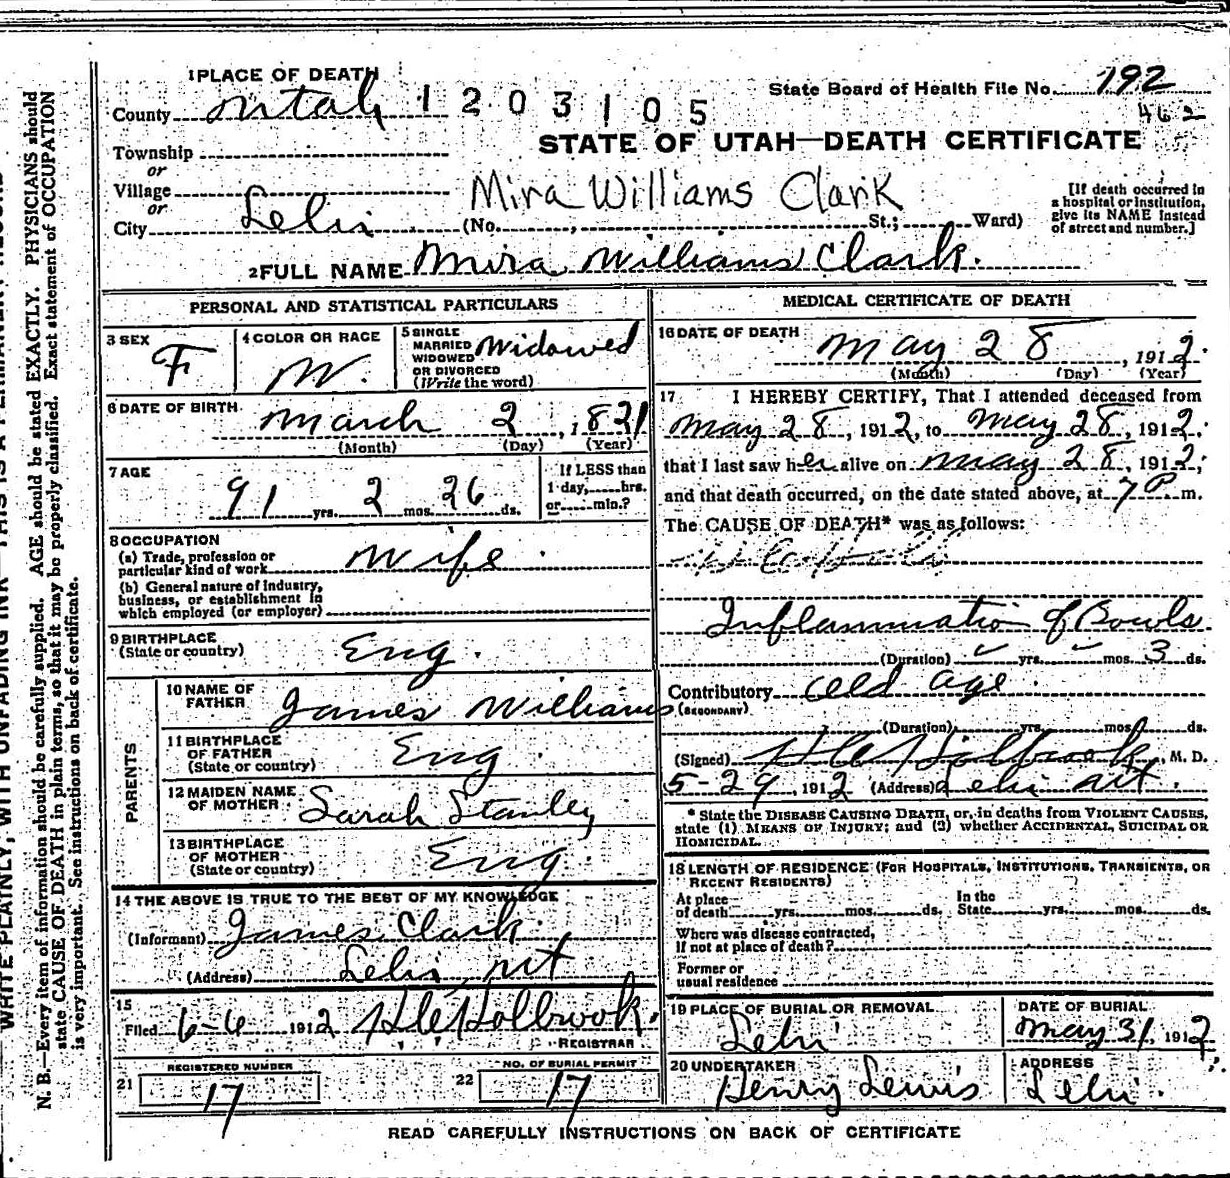 1 PLACE OF DEATH
County Utah 1203105
State Board of Health File No. 192
462
STATE OF UTAH—DEATH CERTIFICATE
Township
or
Village
or
City Lehi
Mira Williams Clark
(No. , St.; Ward)
[If death occurred in
a hospital or institution,
give its NAME instead
of street and number.]
2 FULL NAME Mira Williams Clark.
PERSONAL AND STATISTICAL PARTICULARS
3 SEX F
4 COLOR OR RACE W.
5 SINGLE
MARRIED
WIDOWED
OR DIVORCED
(Write the word) Widowed
6 DATE OF BIRTH
March 2, 1821
(Month) (Day) (Year)
7 AGE
91 yrs. 2 mos. 26 ds.
If LESS than
1 day, hrs.
or min.?
8 OCCUPATION
(a) Trade, profession or
particular kind of work Wife
(b) General nature of industry,
business, or establishment in
which employed (or employer)
9 BIRTHPLACE
(State or country) Eng.
PARENTS
10 NAME OF
FATHER James Williams
11 BIRTHPLACE
OF FATHER
(State or country) Eng.
12 MAIDEN NAME
OF MOTHER Sarah Stanley
13 BIRTHPLACE
OF MOTHER
(State or country) Eng.
14 THE ABOVE IS TRUE TO THE BEST OF MY KNOWLEDGE
(Informant) James Clark
(Address) Lehi, Ut
15
Filed 6-6 1912 H E Holbrook.
REGISTRAR
21 REGISTERED NUMBER
17
22 NO. OF BURIAL PERMIT
17
MEDICAL CERTIFICATE OF DEATH
16 DATE OF DEATH
May 28, 1912.
(Month) (Day) (Year)
17 I HEREBY CERTIFY, That I attended deceased from
May 28, 1912, to May 28, 1912,
that I last saw her alive on May 28, 1912,
and that death occurred, on the date stated above, at 7 P m.
The CAUSE OF DEATH* was as follows:
Inflammation of Bowls
(Duration) yrs. mos. 3 ds.
Contributory Old age
(SECONDARY)
(Duration) yrs. mos. ds.
(Signed) H E Holbrook, M. D.
5-29, 1912 (Address) Lehi Ut.
* State the DISEASE CAUSING DEATH, or, in deaths from VIOLENT CAUSES,
state (1) MEANS OF INJURY; and (2) whether ACCIDENTAL, SUICIDAL OR
HOMICIDAL.
18 LENGTH OF RESIDENCE (FOR HOSPITALS, INSTITUTIONS, TRANSIENTS, OR
RECENT RESIDENTS)
At place
of death yrs. mos. ds.
In the
State yrs. mos. ds.
Where was disease contracted,
If not at place of death?
Former or
usual residence
19 PLACE OF BURIAL OR REMOVAL
Lehi
DATE OF BURIAL
May 31, 1912
20 UNDERTAKER
Henry Lewis
ADDRESS
Lehi.
READ CAREFULLY INSTRUCTIONS ON BACK OF CERTIFICATE
WRITE PLAINLY, WITH UNFADING INK—THIS IS A PERMANENT RECORD
N. B.—Every item of information should be carefully supplied. AGE should be stated EXACTLY. PHYSICIANS should
state CAUSE OF DEATH in plain terms, so that it may be properly classified. Exact statement of OCCUPATION
is very important. See instructions on back of certificate.